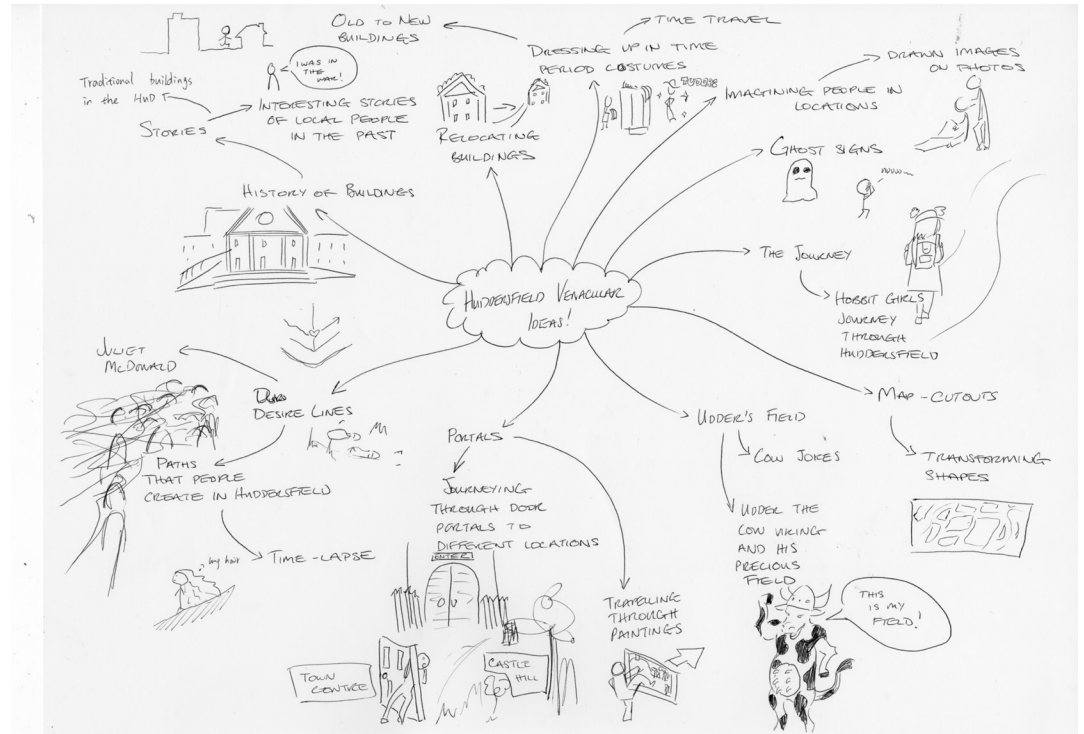 OLD TO NEW
BUILDINGS
TIME TRAVEL
DRESSING UP IN TIME
PERIOD COSTUMES
DRAWN IMAGES
ON PHOTOS
IMAGINING PEOPLE IN
LOCATIONS
I WAS IN
THE
WAR!
Traditional buildings
in the HUD
STORIES
INTERESTING STORIES
OF LOCAL PEOPLE
IN THE PAST
RELOCATING
BUILDINGS
GHOST SIGNS
HISTORY OF BUILDINGS
THE JOURNEY
HOBBIT GIRLS
JOURNEY
THROUGH
HUDDERSFIELD
HUDDERSFIELD VENACULAR
IDEAS!
JULIET
MCDONALD
DESIRE LINES
PATHS
THAT PEOPLE
CREATE IN HUDDERSFIELD
TIME-LAPSE
my hair
PORTALS
JOURNEYING
THROUGH DOOR
PORTALS TO
DIFFERENT LOCATIONS
ENTER
TOWN
CENTRE
CASTLE
HILL
TRAVELLING
THROUGH
PAINTINGS
UDDER'S FIELD
COW JOKES
UDDER THE
COW VIKING
AND HIS
PRECIOUS
FIELD
THIS
IS MY
FIELD!
MAP-CUTOUTS
TRANSFORMING
SHAPES